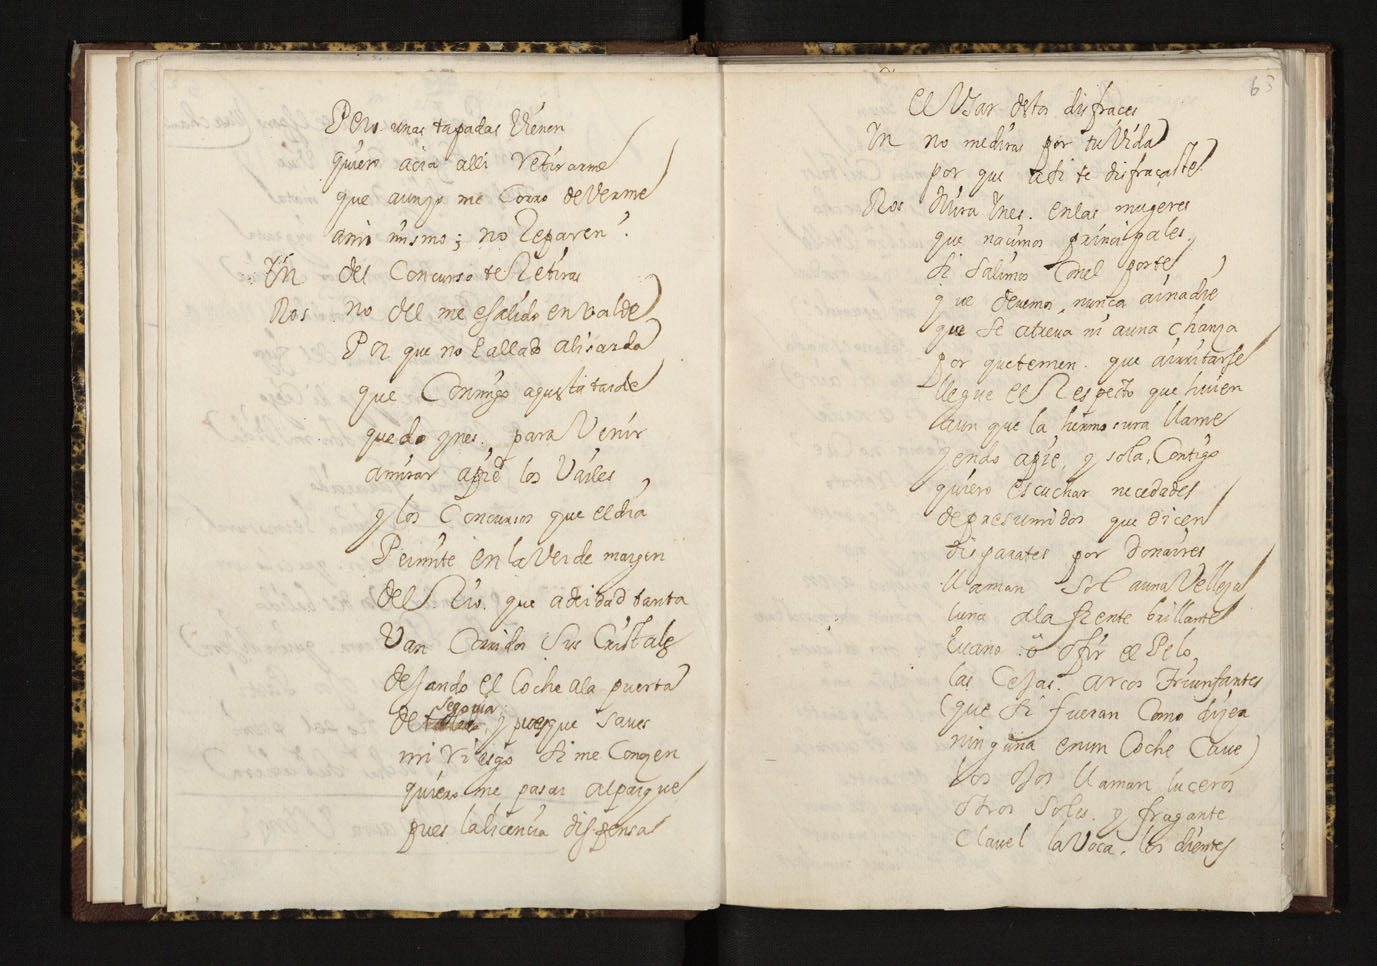 Pero unas tapadas Vienen
quiero acia alli retirarme
que aunq̃ me Corro de Verme
ami mismo; no Reparen.
Yn del Concurso te Retiras
Ros no del me e salido en valde
Por que no e allado a lisarda
que Conmigo aquesta tarde
quedo ynes. para Venir
amirar apie los Vailes
y los Concursos que el dia
Permite en la Verde margen
del Rio. que a deidad tanta
Van Corridos Sus Cristales
dejando el Coche ala puerta
de segovia y porque saves
mi riesgo si me Conocen
quiero me pasar al parque
pues la licencia dispensa
63
el Vsar destos disfraces
Yn no me diras por tu Vida
por que asi te disfraçaste
Ros Mira Ynes. en las mugeres
que nacimos principales.
si salimos Con el porte
que devemos nunca ai nadie
que se atreva ni a una chanza
por que temen. que a irritarse
llegue el Respecto que hirien
aun que la hermosura llame
yendo apie, y sola, Contigo
quiero escuchar necedades
de presumidos que dicen
disparates por donaires
llaman Sol a una Belleza
luna ala frente brillante
tucano o ofir el Pelo,
las Cejas. arcos Triunfantes
(que si fueran Como dizen
ninguna en un Coche Cave)
los ojos llaman luceros
otros soles. y fragante
Clavel la Voca, los dientes